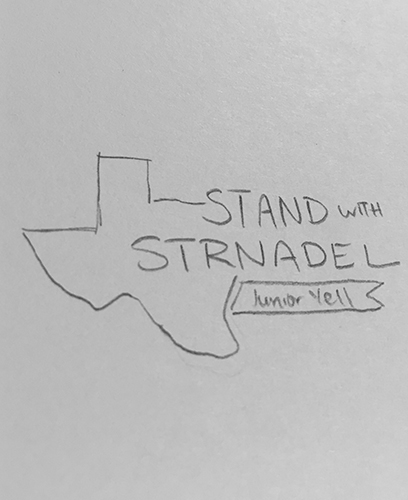 STAND WITH
STRNADEL
Junior Yell